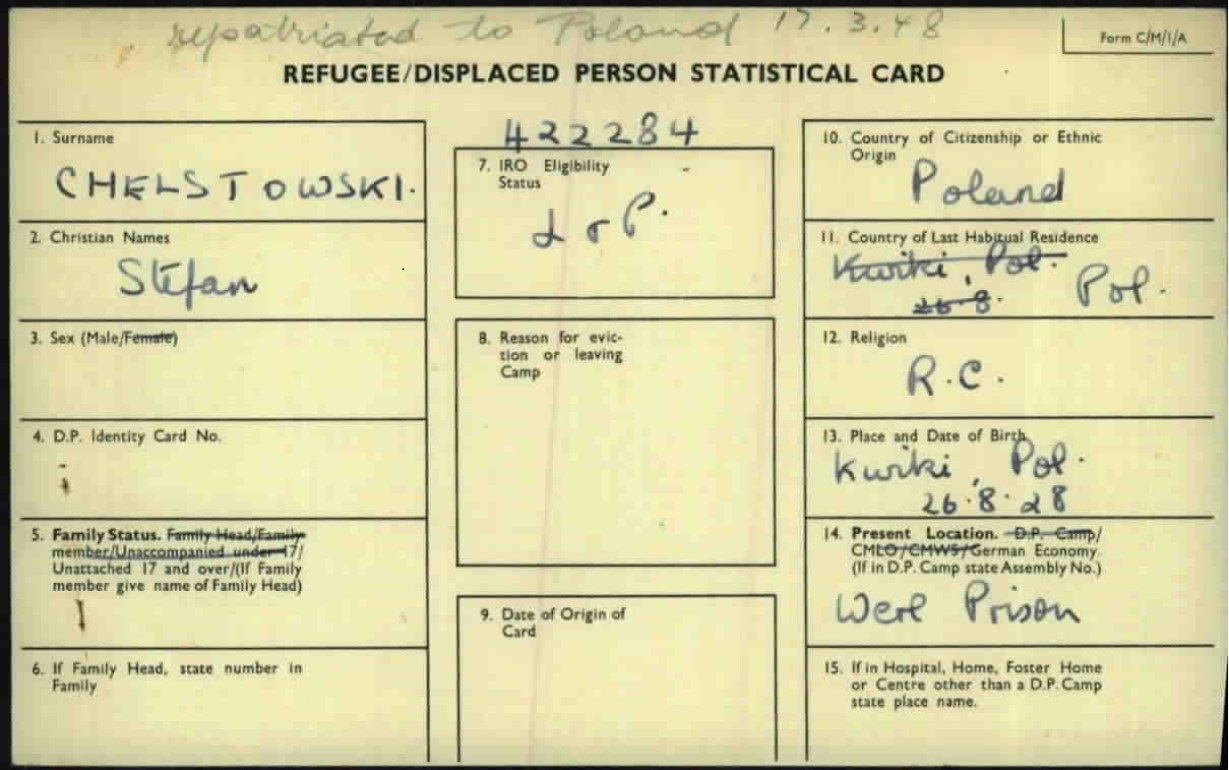 repatriated to Poland 17.3.48
Form C/M/1/A
REFUGEE/DISPLACED PERSON STATISTICAL CARD
1. Surname
CHELSTOWSKI.
2. Christian Names
Stefan
3. Sex (Male/Female)
4. D.P. Identity Card No.
5. Family Status. Family Head/Family
member/Unaccompanied under 17/
Unattached 17 and over/(If Family
member give name of Family Head)
6. If Family Head, state number in
Family
422284
7. IRO Eligibility
Status
8. Reason for evic-
tion or leaving
Camp
9. Date of Origin of
Card
10. Country of Citizenship or Ethnic
Origin
Poland
11. Country of Last Habitual Residence
Kwiki, Pol.
26.8.
Pol.
12. Religion
R.C.
13. Place and Date of Birth
Kwiki, Pol.
26.8.28
14. Present Location. D.P. Camp/
CMLO/CMWS/German Economy.
(If in D.P. Camp state Assembly No.)
Werl Prison
15. If in Hospital, Home, Foster Home
or Centre other than a D.P. Camp
state place name.